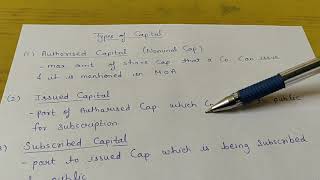 Types of Capital
(1) Authorised Capital (Nominal Cap)
- max amt of share cap that a Co. Can issue
& it is mentioned in MOA
(2) Issued Capital
- part of Authorised Cap which Co public
for subscription
3) Subscribed Capital
- part to issued Cap which is being subscribed
public